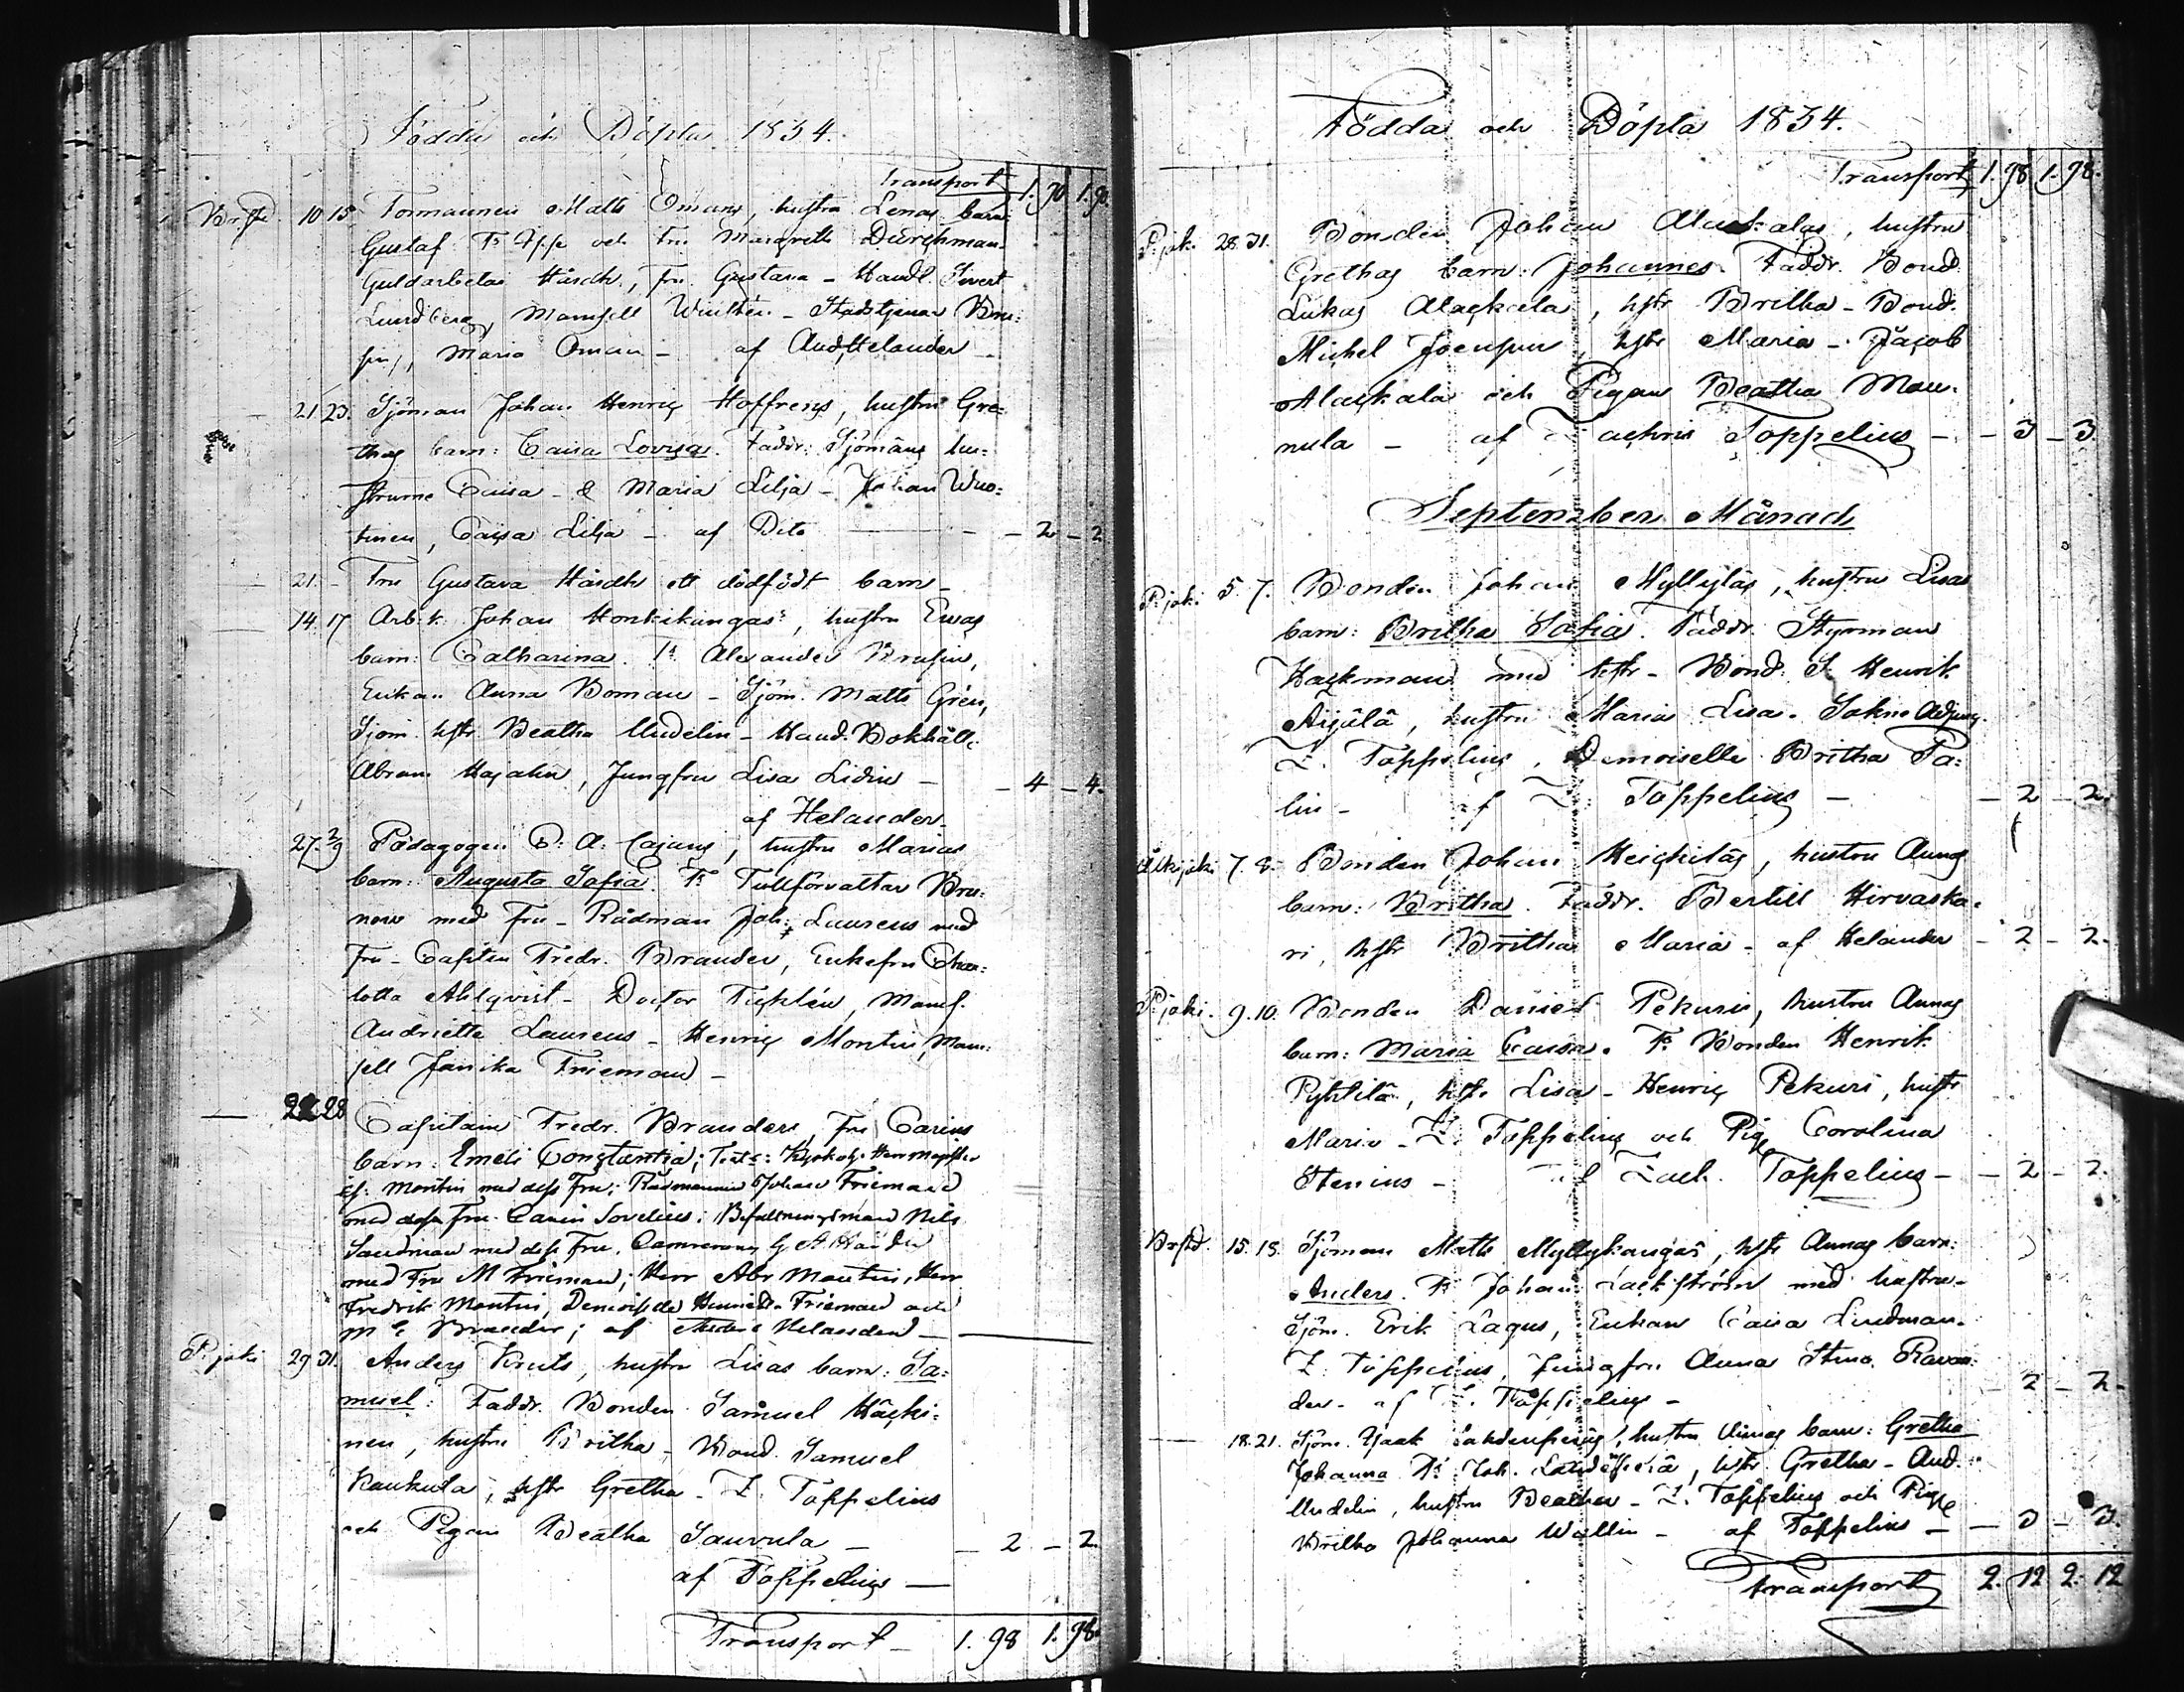 Födda och Döpta 1834.
Transport 1.90 1.90
Br.std. 10 15 Tormannen Matts Omans, hustru Lenas barn:
Gustaf. Fr och Fru Margreth Durchman
Guldarbetar Hårdh, Fru Gustava - Handl. Sivert
Lundberg, Mamsell Winthèr - Stadstjenar Bru:
sin, Maria Oman - af And. Helander
21 23. Sjöman Johan Henric Hoffrens, hustru Gre:
thas barn: Caisa Lovisa. Faddr: Sjömans hu:
strurne Caisa - & Maria Lilja - Johan Wuo:
tinen, Caisa Lilja - af Dito - 2 - 2
21 - Fru Gustava Hårdh ett dödfödt barn -
14. 17 Arb.k. Johan Honkikangas, hustru Ewas
barn: Catharina. Fr Alexander Brusin,
Enkan Anna Boman - Sjöm. Matts Grèn,
Sjöm. hstr Beatha Uudelin - Hand. Bokhåll.
Abram Hajahn, Jungfru Lisa Lidin - - 4 - 4.
af Helander -
27. 2/9 Pädagogen P. A. Cajans, hustru Marias
barn: Augusta Safia. Fr Tullförvaltar Bru:
now med Fru - Rådman Joh. Laurens med
Fru - Capiten Fredr. Brander, Enkefru Char:
lotta Ahlqvist - Doctor Ticklén, Mams.
Andriette Laurens - Henric Montin, Mam:
sell Janika Frieman -
28 Capitaine Fredr. Branders, Fru Carins
barn: Emeli Constantia; Test:
Montin med dess Fru; Rådmannen Johan Frieman
med dess Fru Carin Sovelius; Befallningsman Nils
Sandman med dess Fru,
med Fru M Frieman; Herr Abr Montin, Herr
Fredrik Montin, Demoiselle Frieman och
M C Brander; af Anders Helander -
P.joki 29 31. Anders Kruts, hustru Lisas barn: Sa:
muel: Faddr. Bonden Samuel Häcki:
nen, hustru Britha - Bond. Samuel
Kaukula, hstr Gretha - Z. Toppelius
och Pigan Beatha Sauvula - - 2 - 2
af Toppelius -
Transport - 1. 98 1. 98.
Födda och Döpta 1834.
Transport 1.98 1.98.
P.joki 28. 31. Bonden Johan Alackalas, hustru
Grethas barn: Johannes. Faddr. Bond
Lukas Alackala, hstr Britha - Bond.
Michel Joensuu, hstr Maria - Jacob
Alackala och Pigan Beatha Man:
nula - af Toppelius - - 3 - 3
September Månad
P.joki 5 7. Bonden Johan Myllyläs, hustru Lisas
barn: Britha Safia. Faddr. Styrman
Hackman med hstr - Bond. S. Henrik
Äijälä, hustru Maria Lisa. Sokne Adjung.
Z. Toppelius, Demoiselle Britha Pa:
lin - af Z: Toppelius - - 2 - 2.
7. 8. Bonden Johan Heickiläs, hustru Annas
barn: Britha. Faddr. Bertill Hirvaska:
ri, hstr Britha Maria - af Helander - 2 - 2.
P.joki. 9. 10. Bonden Daniel Pekuris, hustru Annas
barn: Maria Caisa. Fr Bonden Henrik
Pyhtilä, hstr Lisa - Henric Pekuri, hustr
Maria - Z. Toppelius och Pig Carolina
Stenius - af Zach. Toppelius - - 2 - 2.
Br.std. 15. 18. Sjöman Matts Myllykangas, hstr Annas barn:
Anders. Fr Johan Lackström med hustru -
Sjöm. Erik Lagus, Enkan Caisa Lindman -
Z. Toppelius, Jungfru Anna Stina Ravan:
der - af Z. Toppelius - - 2 - 2.
18. 21. Sjöm. Isaak hustru Annas barn: Gretha
Johanna Fr Joh. hstr. Gretha - And.
Uudelin, hustru Beatha - Z. Toppelius och Pig
Britha Johanna Wallin - af Toppelius - - 3 - 3.
Transport 2. 12 2. 12